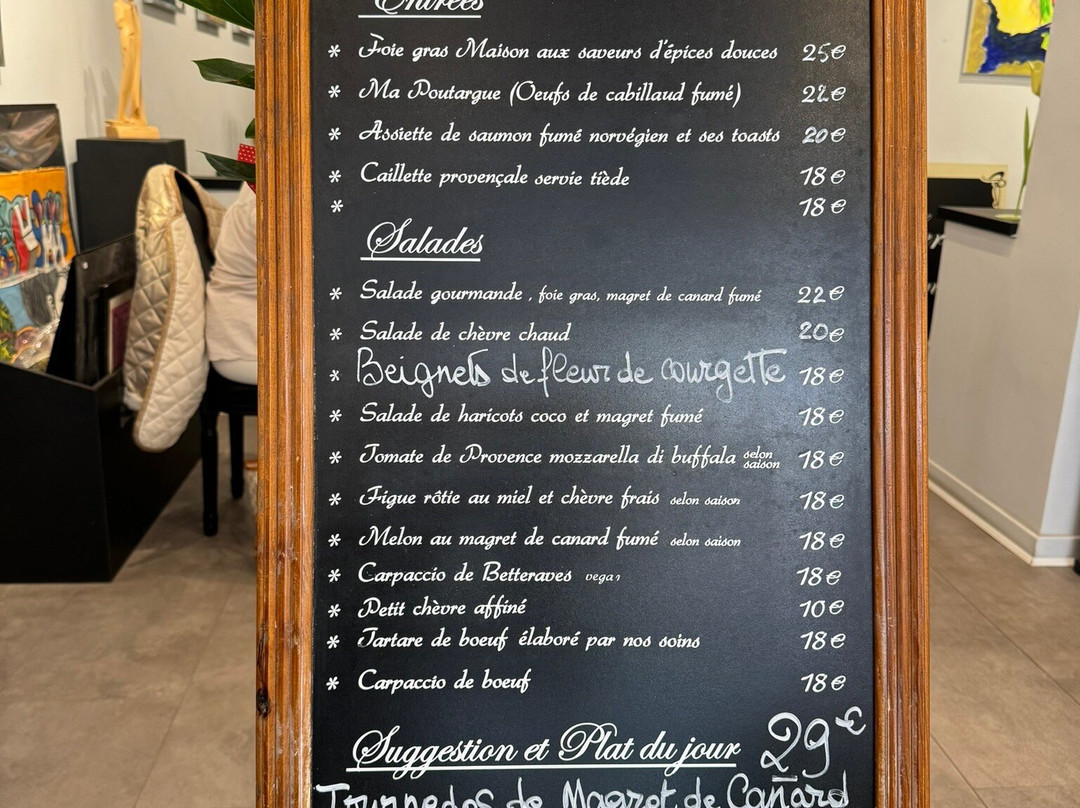 Entrées
* Foie gras Maison aux saveurs d'épices douces 25€
* Ma Poutargue (Oeufs de cabillaud fumé) 22€
* Assiette de saumon fumé norvégien et ses toasts 20€
* Caillette provençale servie tiède 18€
* 18€
Salades
* Salade gourmande , foie gras, magret de canard fumé 22€
* Salade de chèvre chaud 20€
* Beignets de fleur de courgette 18€
* Salade de haricots coco et magret fumé 18€
* Tomate de Provence mozzarella di buffala selon saison 18€
* Figue rôtie au miel et chèvre frais selon saison 18€
* Melon au magret de canard fumé selon saison 18€
* Carpaccio de Betteraves vegan 18€
* Petit chèvre affiné 10€
* Tartare de boeuf élaboré par nos soins 18€
* Carpaccio de boeuf 18€
Suggestion et Plat du jour 29€
Tournedos de Magret de Canard